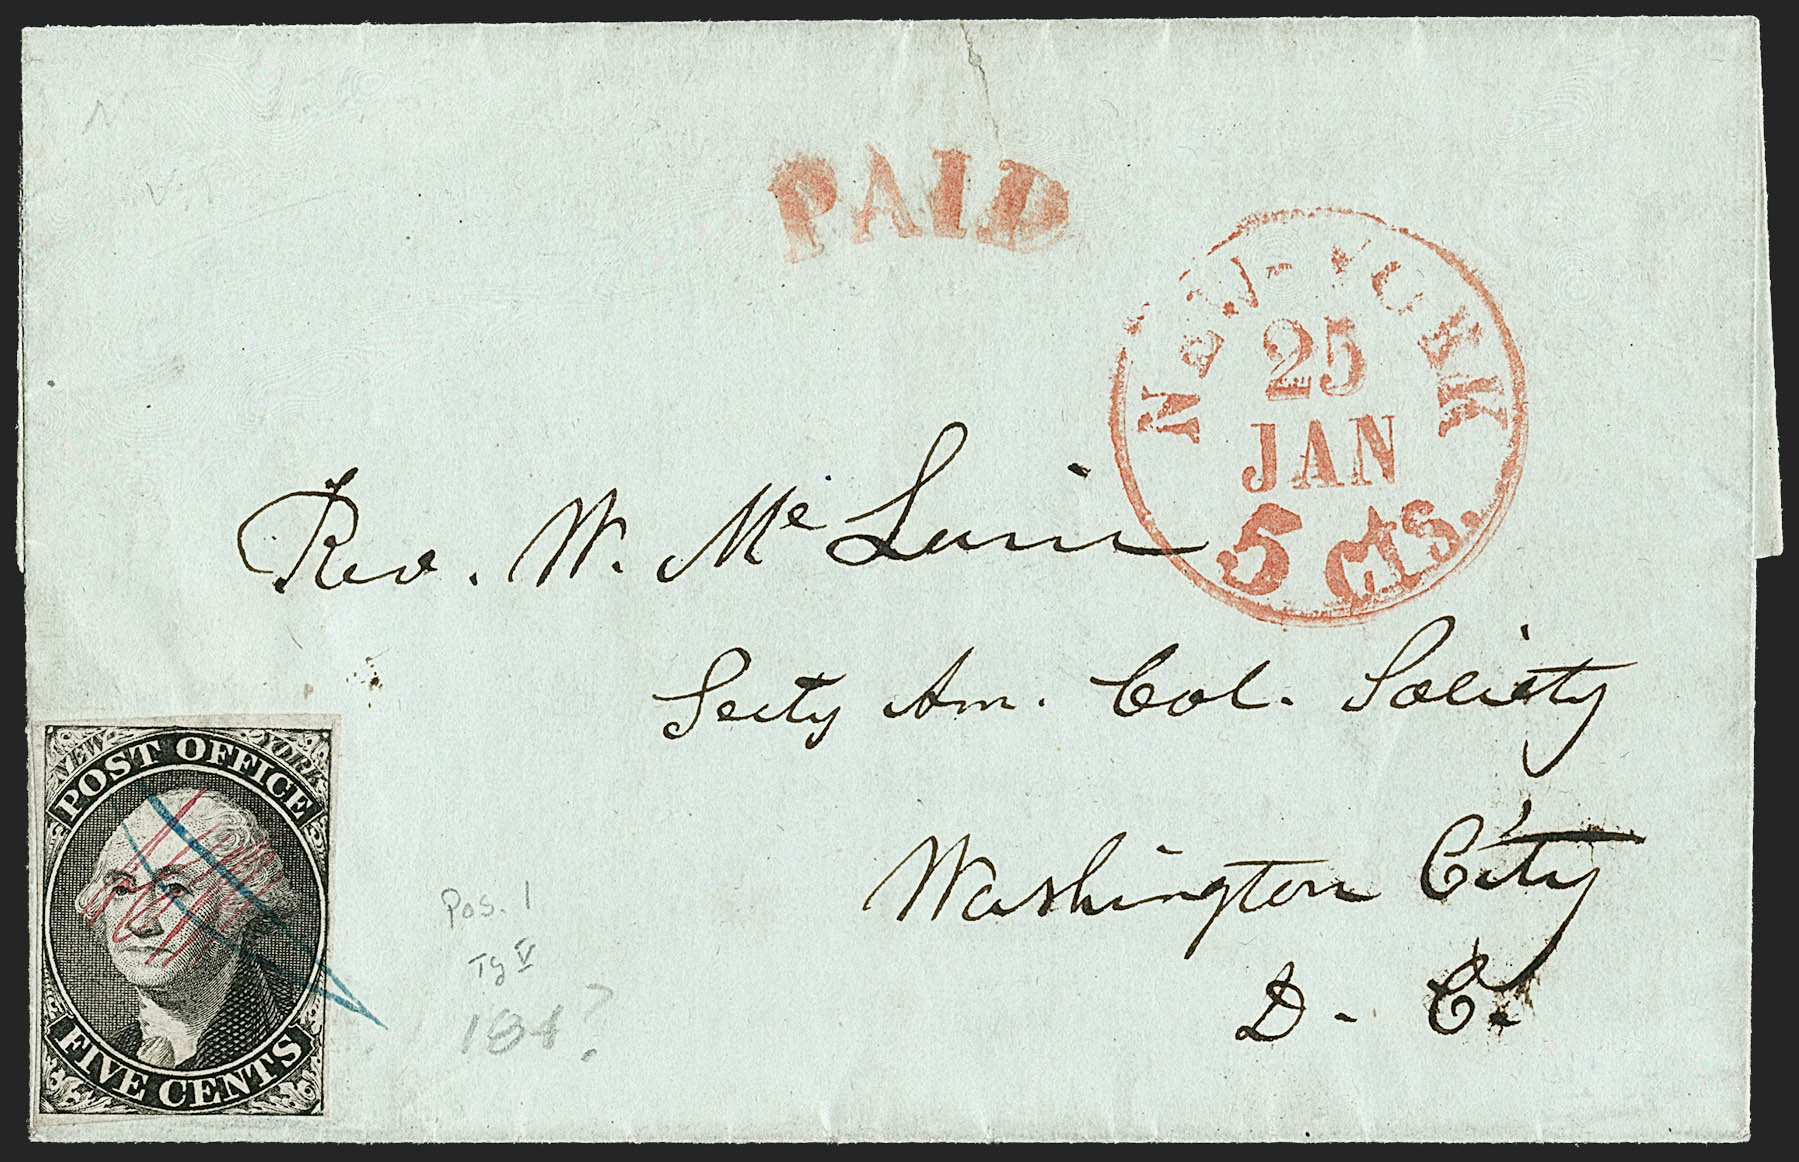 PAID
NEW-YORK
25
JAN
5 Cts.
Rev. W. Mc Lain
Secty Am. Col. Society
Washington City
D. C.
NEW YORK
POST OFFICE
FIVE CENTS
Pos. 1
Tg V
184?